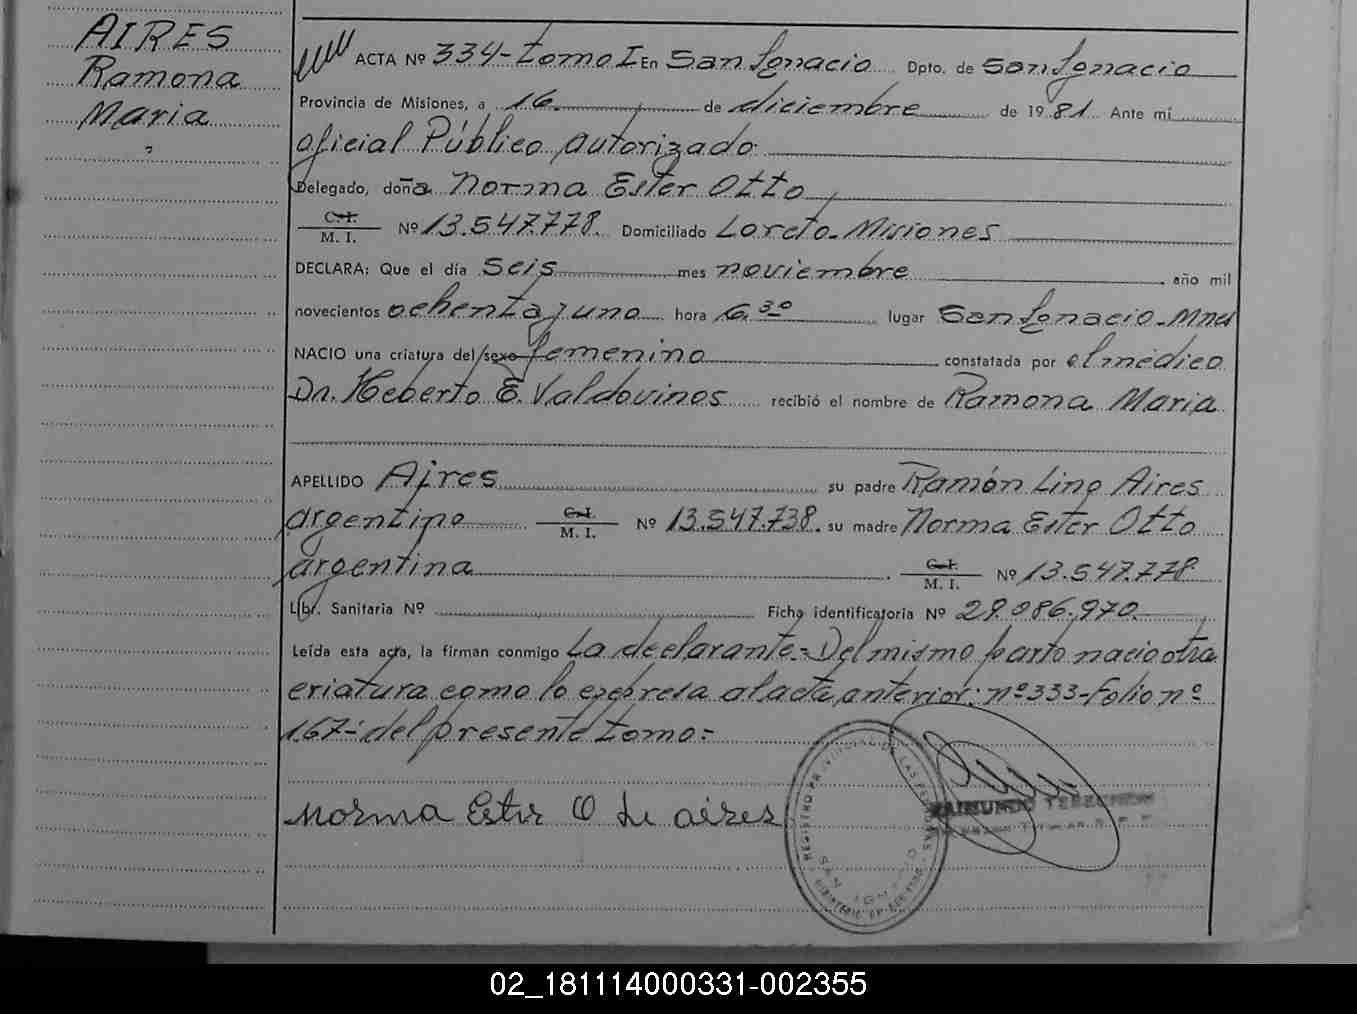 AIRES
Ramona
Maria
ACTA Nº 334-Tomo I En San Ignacio Dpto. de San Ignacio
Provincia de Misiones, a 16 de diciembre de 1981. Ante mí
oficial Público autorizado
Delegado, doña Norma Ester Otto
C.I.
M. I. Nº 13.547.778. Domiciliado Loreto-Misiones
DECLARA: Que el día seis mes noviembre año mil
novecientos ochenta y uno hora 6.30 lugar San Ignacio-Mnes
NACIO una criatura del sexo femenino constatada por el médico
Dn. Heberto E. Valdovinos recibió el nombre de Ramona Maria
APELLIDO Aires su padre Ramón Lino Aires
argentino C.I. M. I. Nº 13.547.738. su madre Norma Ester Otto
argentina C.I. M. I. Nº 13.547.778
Libr. Sanitaria Nº Ficha identificatoria Nº 29.086.970
Leída esta acta, la firman conmigo La declarante.- Del mismo parto nacio otra
criatura como lo expresa al acta anterior: nº 333-Folio nº
167- del presente tomo.-
Norma Ester O de aires
REGISTRO PROVINCIAL DE LAS PERSONAS
SAN IGNACIO
RAIMUNDO
02_181114000331-002355